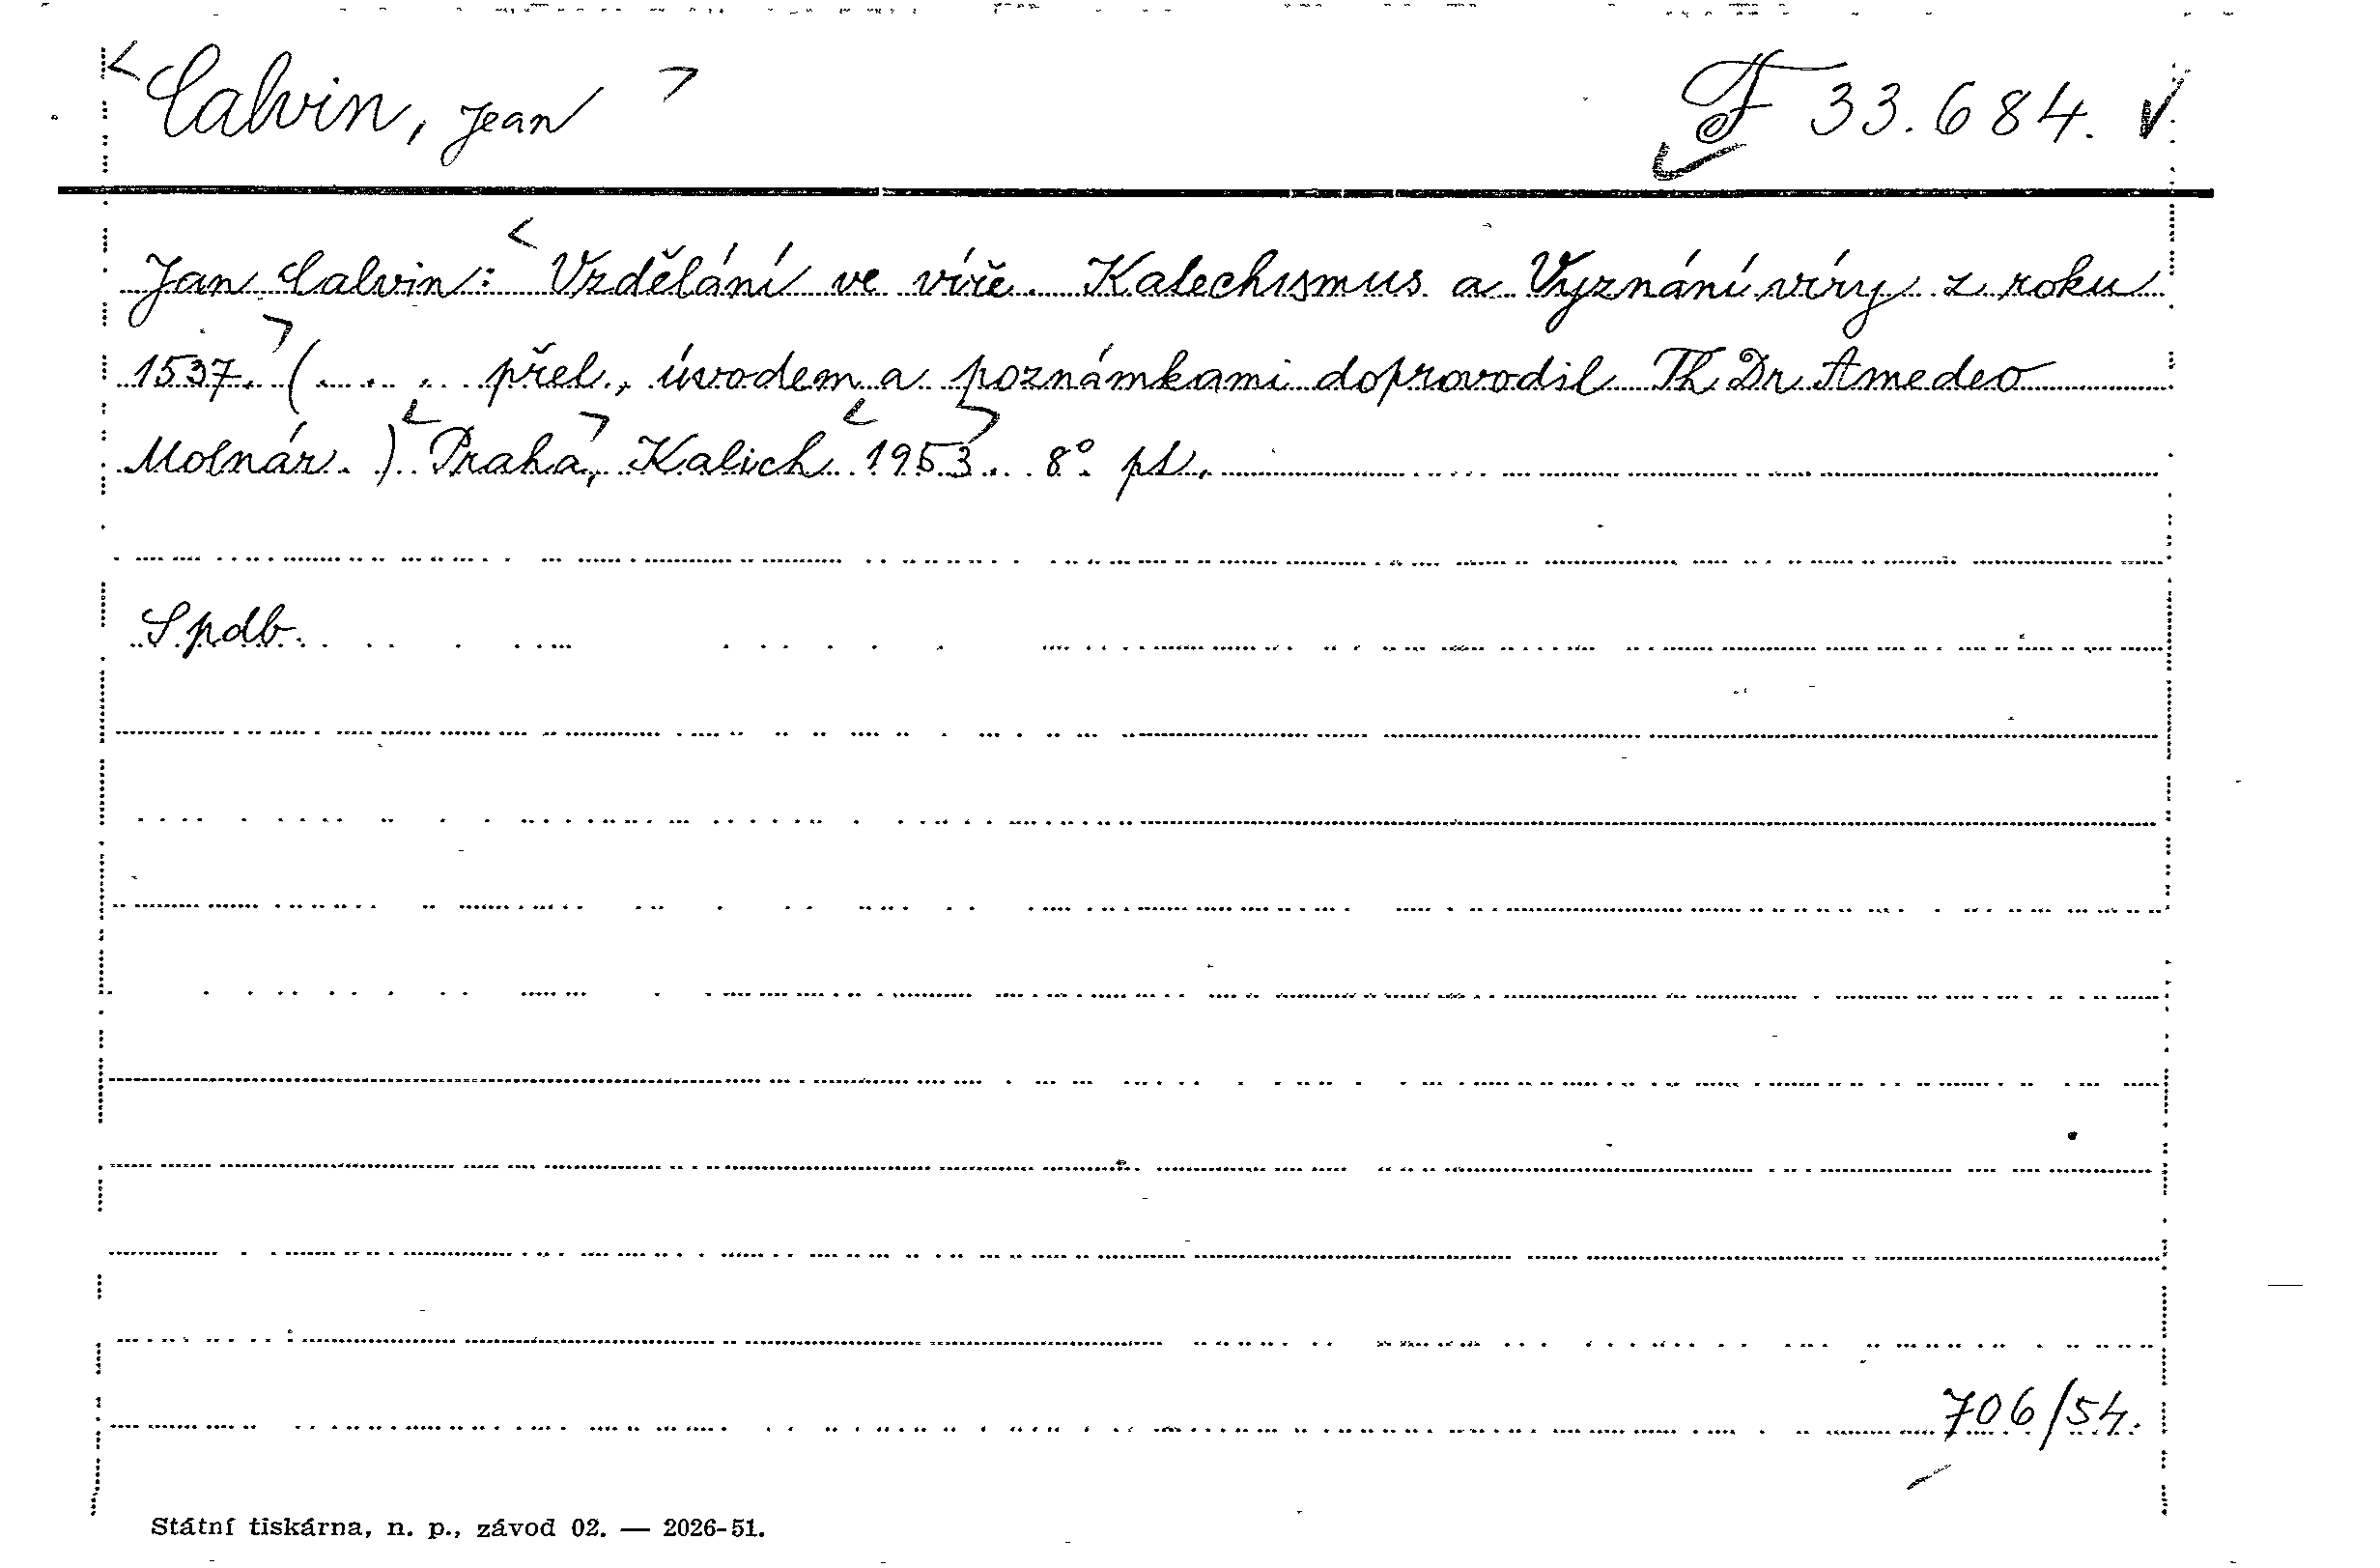 < Calvin, Jean > F 33.684. ✓
Jan Calvin: < Vzdělání ve víře. Katechismus a Vyznání víry z roku
1537. > (. . . . přel., úvodem a poznámkami doprovodil Th Dr Amedeo
Molnár.) < Praha >, Kalich < 1953 >. 8° pl.
Spdb.
706/54.
Státní tiskárna, n. p., závod 02. — 2026-51.